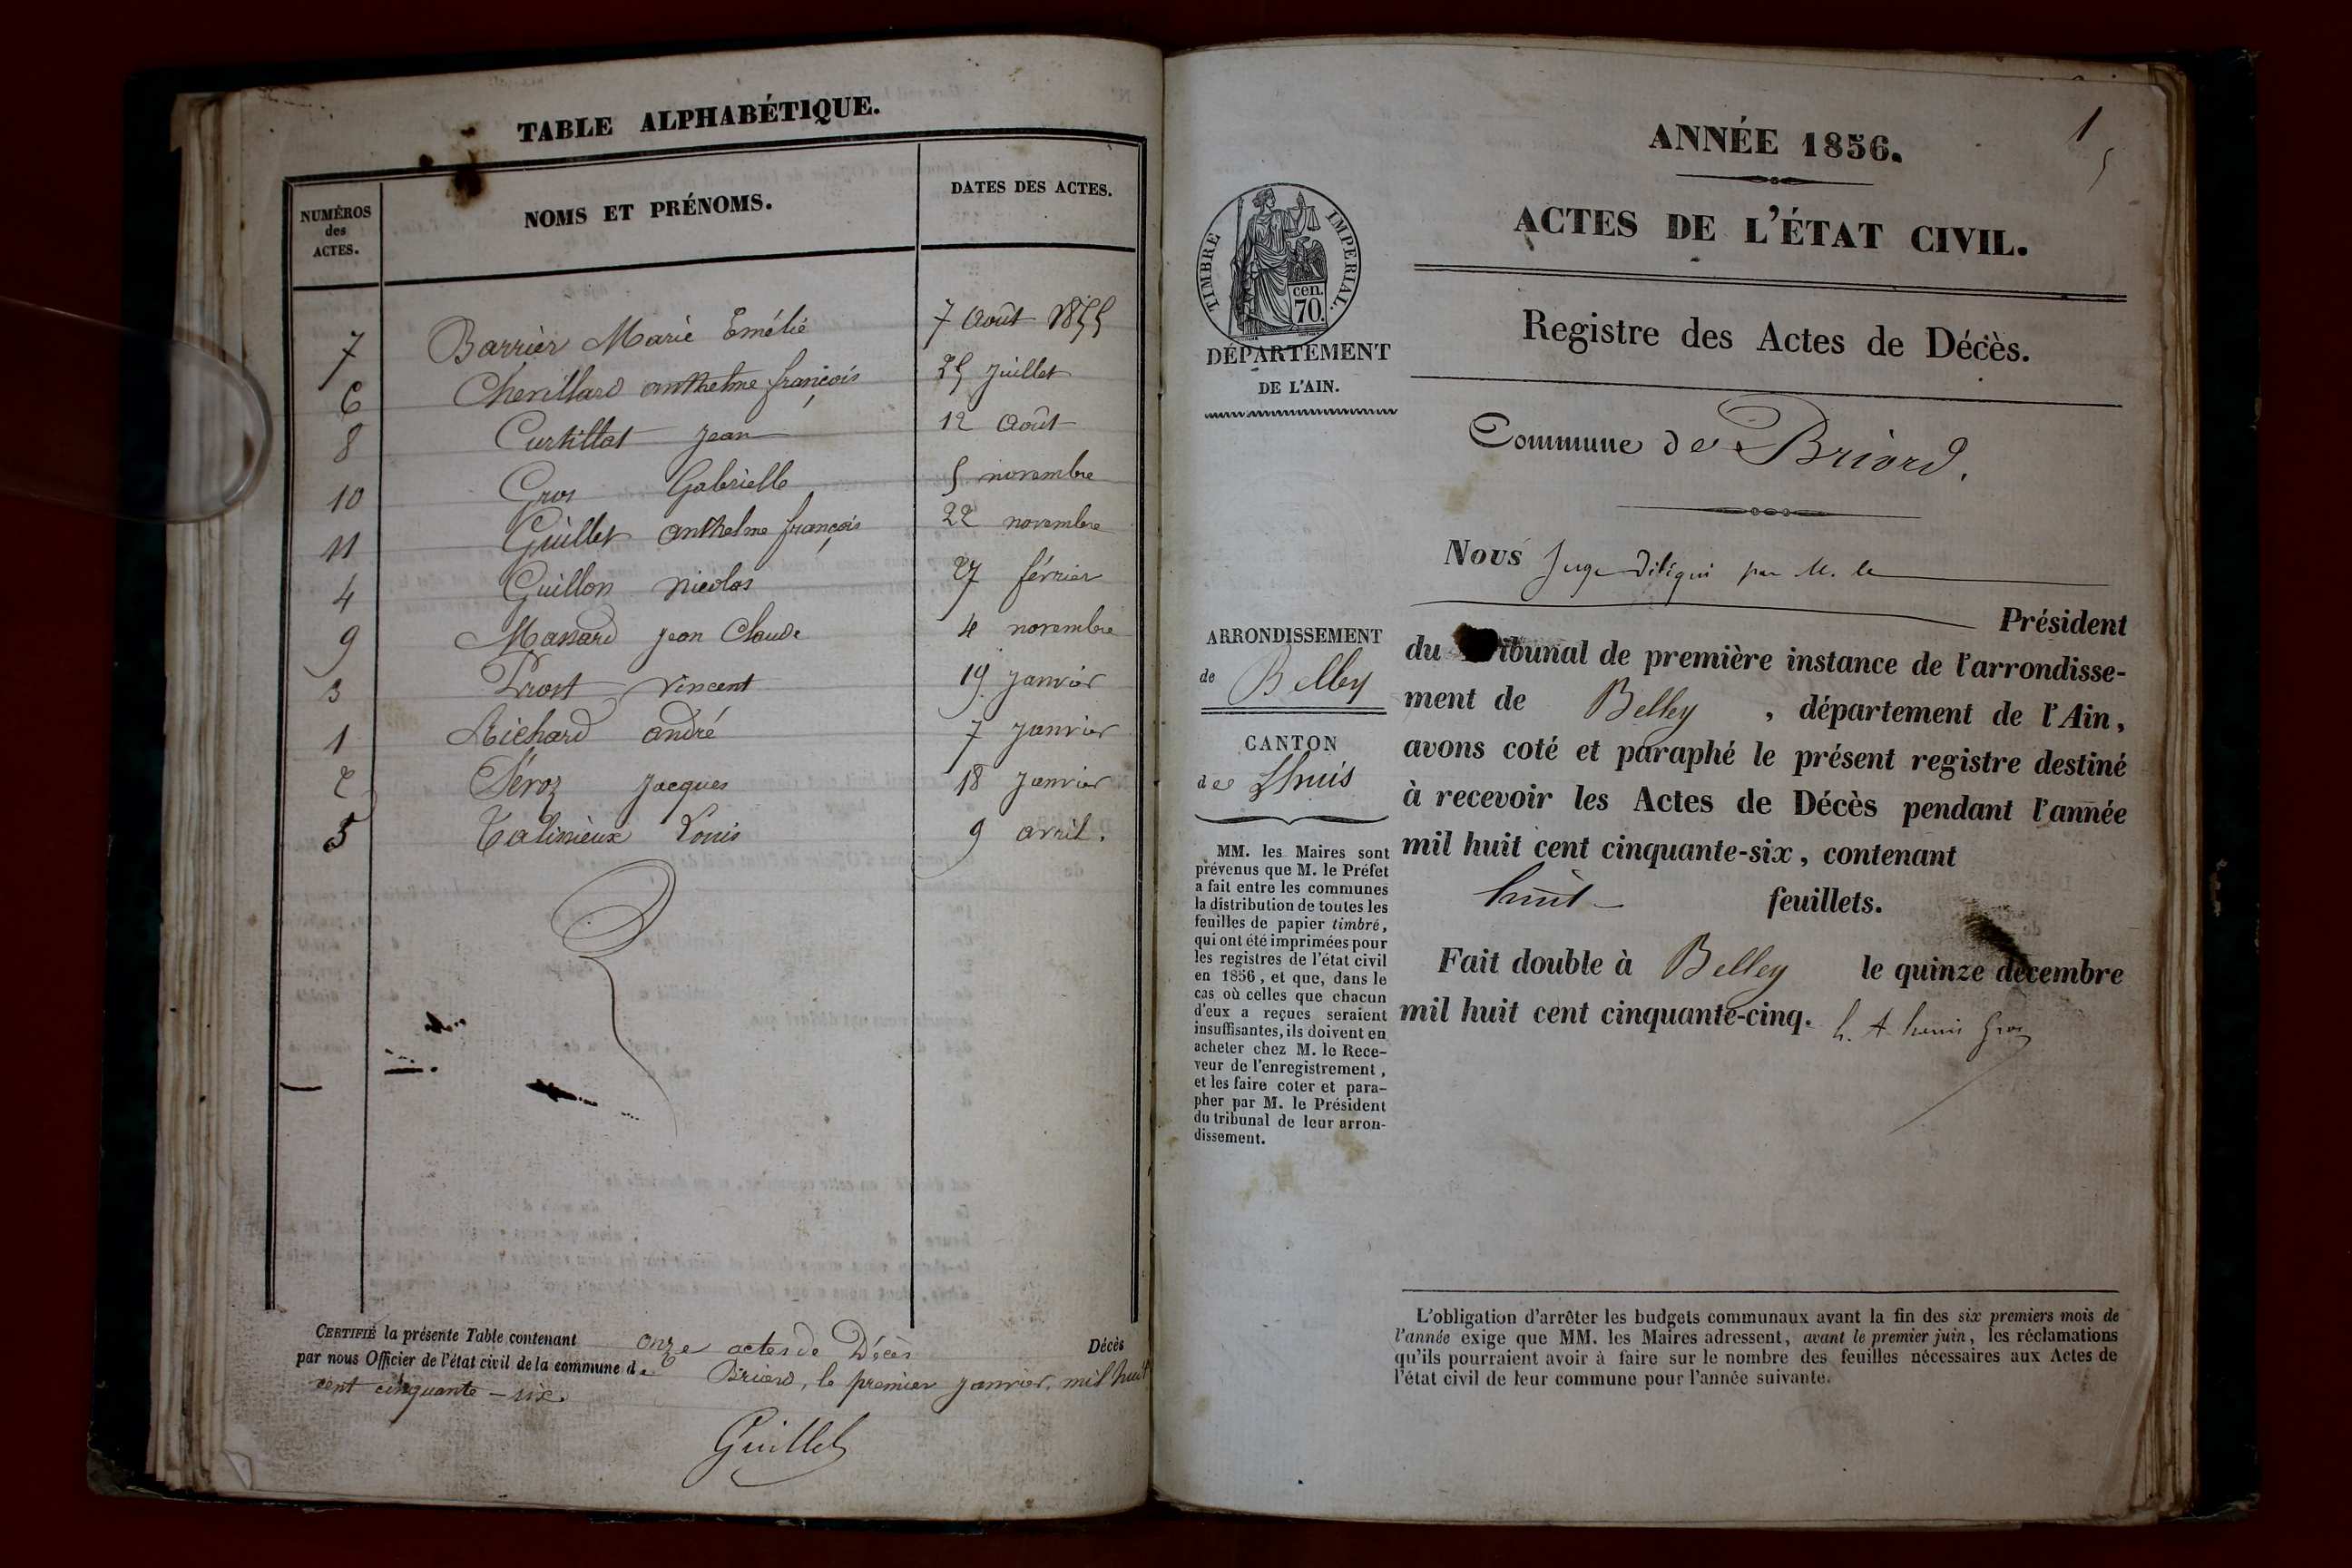 TABLE ALPHABÉTIQUE.
NUMÉROS des ACTES.
NOMS ET PRÉNOMS.
DATES DES ACTES.
7 Barrier Marie Emélie 7 Août 1855
6 Cherillard anthelme françois 25 Juillet
8 Curtillat Jean 12 Août
10 Gros Gabrielle 5 novembre
11 Guillet anthelme françois 22 novembre
4 Guillon nicolas 27 février
9 Massard Jean Claude 4 novembre
3 Prost Vincent 19 Janvier
1 Richard andré 7 Janvier
2 Séroz Jacques 18 Janvier
5 Talinieux Louis 9 avril.
CERTIFIÉ la présente Table contenant onze actes de Décès Décès
par nous Officier de l'état civil de la commune de Briord, le premier Janvier, mil huit
cent cinquante-six.
Guillet
1
ANNÉE 1856.
ACTES DE L'ÉTAT CIVIL.
TIMBRE IMPERIAL.
cen.
70.
DÉPARTEMENT
DE L'AIN.
Registre des Actes de Décès.
Commune de Briord.
Nous Juge délégué par M. le
Président
du Tribunal de première instance de l'arrondisse-
ment de Belley, département de l'Ain,
avons coté et paraphé le présent registre destiné
à recevoir les Actes de Décès pendant l'année
mil huit cent cinquante-six, contenant
huit feuillets.
Fait double à Belley le quinze décembre
mil huit cent cinquante-cinq.
ARRONDISSEMENT
de Belley
CANTON
de Lhuis
MM. les Maires sont
prévenus que M. le Préfet
a fait entre les communes
la distribution de toutes les
feuilles de papier timbré,
qui ont été imprimées pour
les registres de l'état civil
en 1856, et que, dans le
cas où celles que chacun
d'eux a reçues seraient
insuffisantes, ils doivent en
acheter chez M. le Rece-
veur de l'enregistrement,
et les faire coter et para-
pher par M. le Président
du tribunal de leur arron-
dissement.
L'obligation d'arrêter les budgets communaux avant la fin des six premiers mois de
l'année exige que MM. les Maires adressent, avant le premier juin, les réclamations
qu'ils pourraient avoir à faire sur le nombre des feuilles nécessaires aux Actes de
l'état civil de leur commune pour l'année suivante.